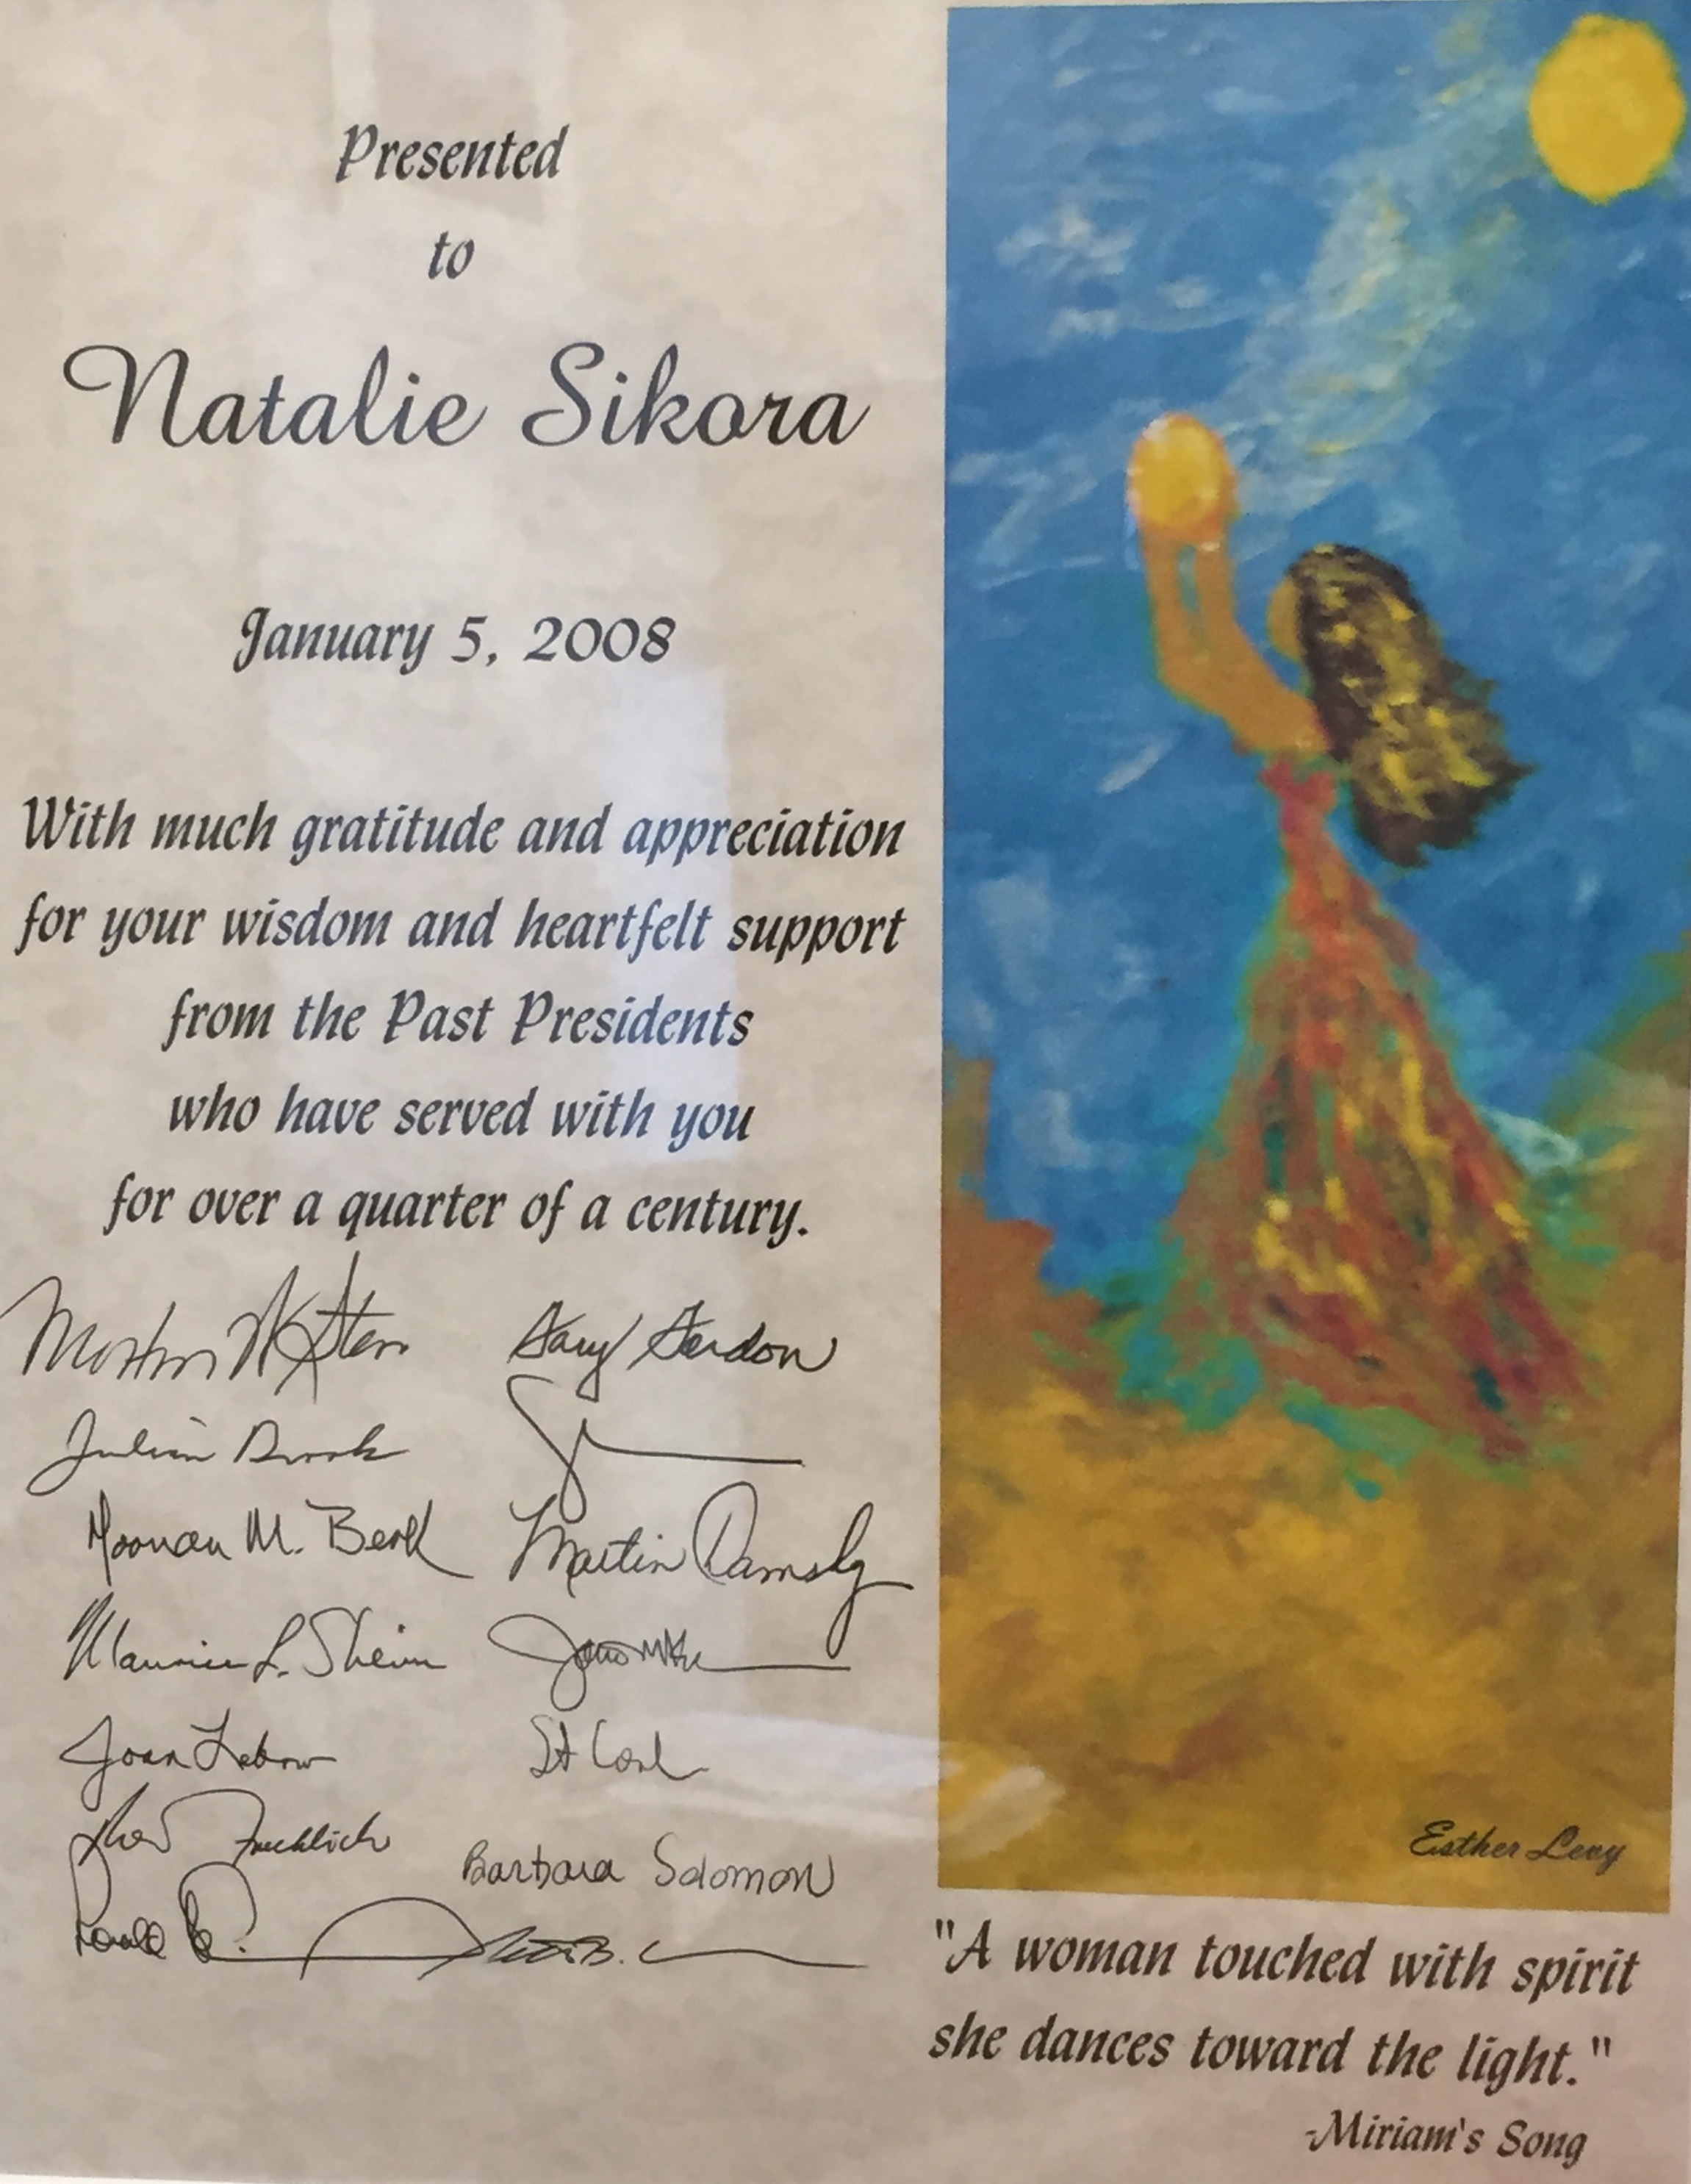 Presented
to
Natalie Sikora
January 5, 2008
With much gratitude and appreciation
for your wisdom and heartfelt support
from the Past Presidents
who have served with you
for over a quarter of a century.
Gary Gordon
Julian Brook
M. Berk
Martin Damsky
Maurice L. Shein
Joan Lebow
Froehlich
Barbara Solomon
Esther Levy
"A woman touched with spirit
she dances toward the light."
-Miriam's Song